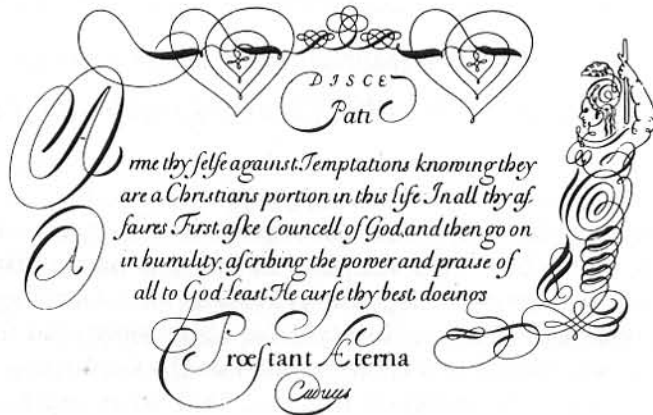 DISCE
Pati
A
Arme thy ſelfe against Temptations knowing they
are a Christians portion in this life. In all thy aſ
faires First aſke Councell of God, and then go on
A
in humility, aſcribing the power and praise of
all to God least He curſe thy best doeings
Prœſtant Æterna
Caducys